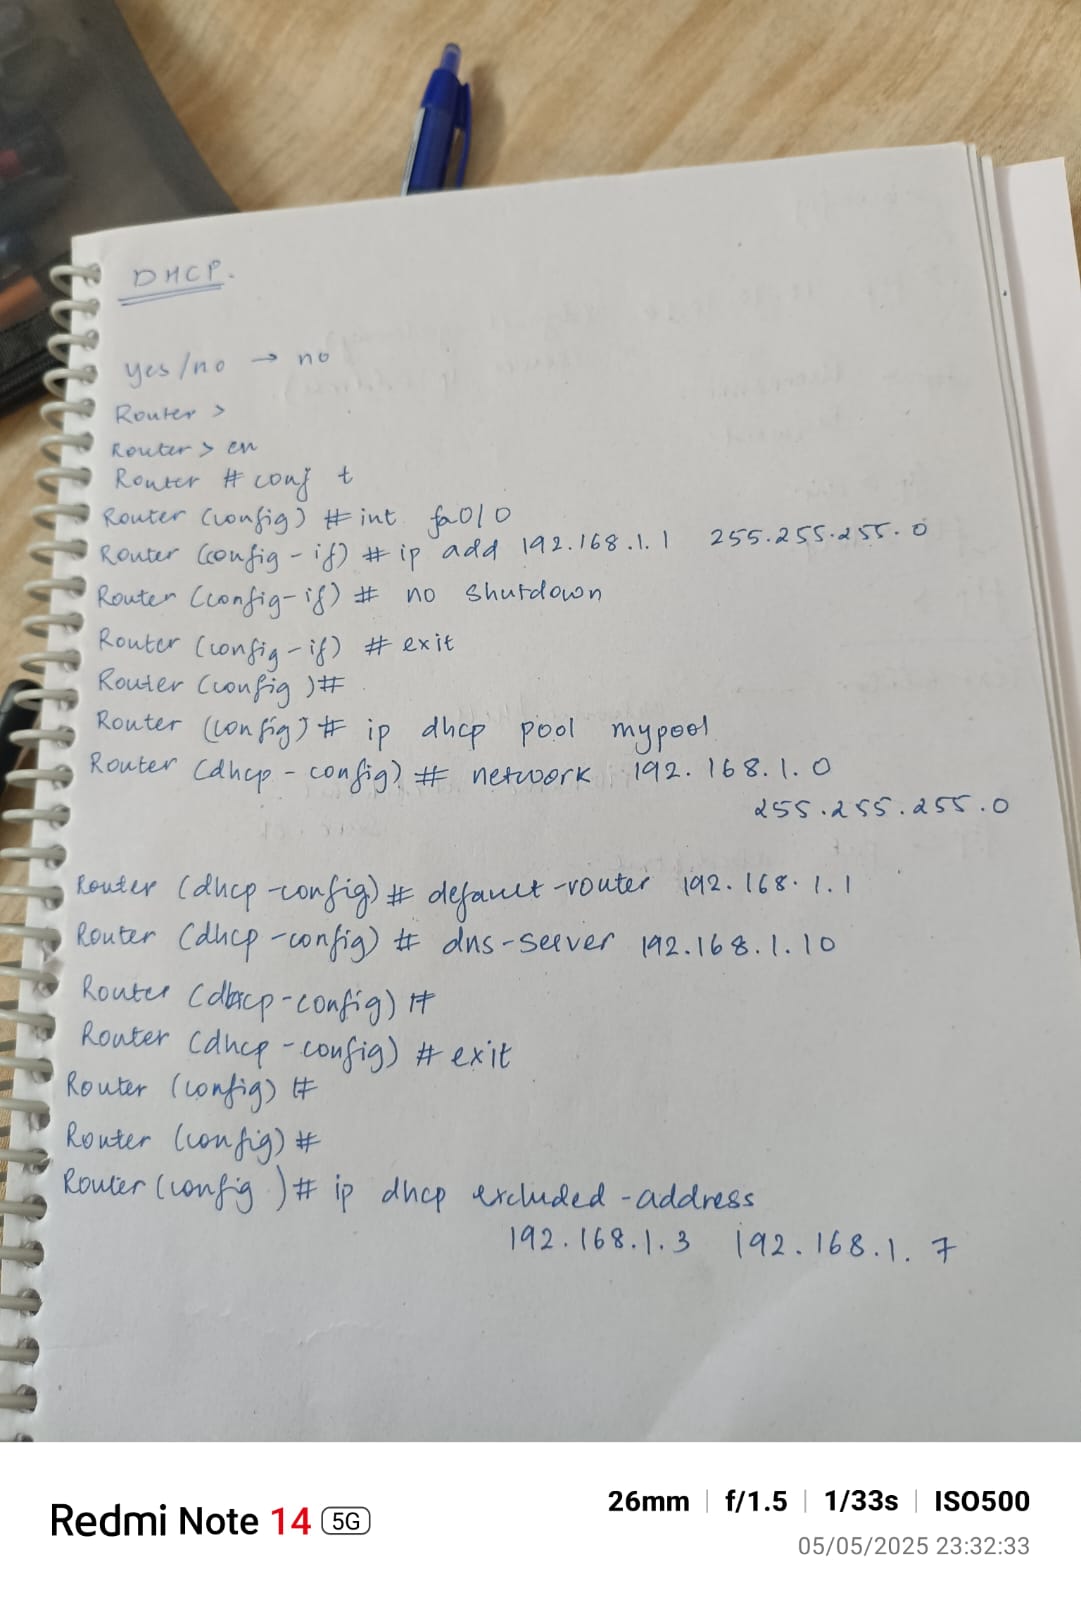 DHCP.
yes/no → no
Router >
Router > en
Router # conf t
Router (config) # int fa0/0
Router (config-if) # ip add 192.168.1.1 255.255.255.0
Router (config-if) # no shutdown
Router (config-if) # exit
Router (config)#
Router (config) # ip dhcp pool mypool
Router (dhcp-config) # network 192.168.1.0
255.255.255.0
Router (dhcp-config) # default-router 192.168.1.1
Router (dhcp-config) # dns-server 192.168.1.10
Router (dhcp-config) #
Router (dhcp-config) # exit
Router (config) #
Router (config) #
Router (config) # ip dhcp excluded-address
192.168.1.3 192.168.1.7
Redmi Note 14 5G
26mm | f/1.5 | 1/33s | ISO500
05/05/2025 23:32:33